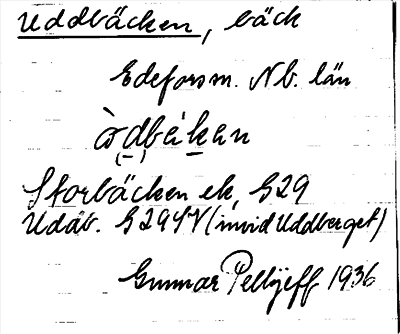 Uddbäcken, bäck
Edeforsm. Nb. län
Storbäcken ek, G29
Udäb. G29 (invid Uddberget)
Gunnar Pellijeff 1936